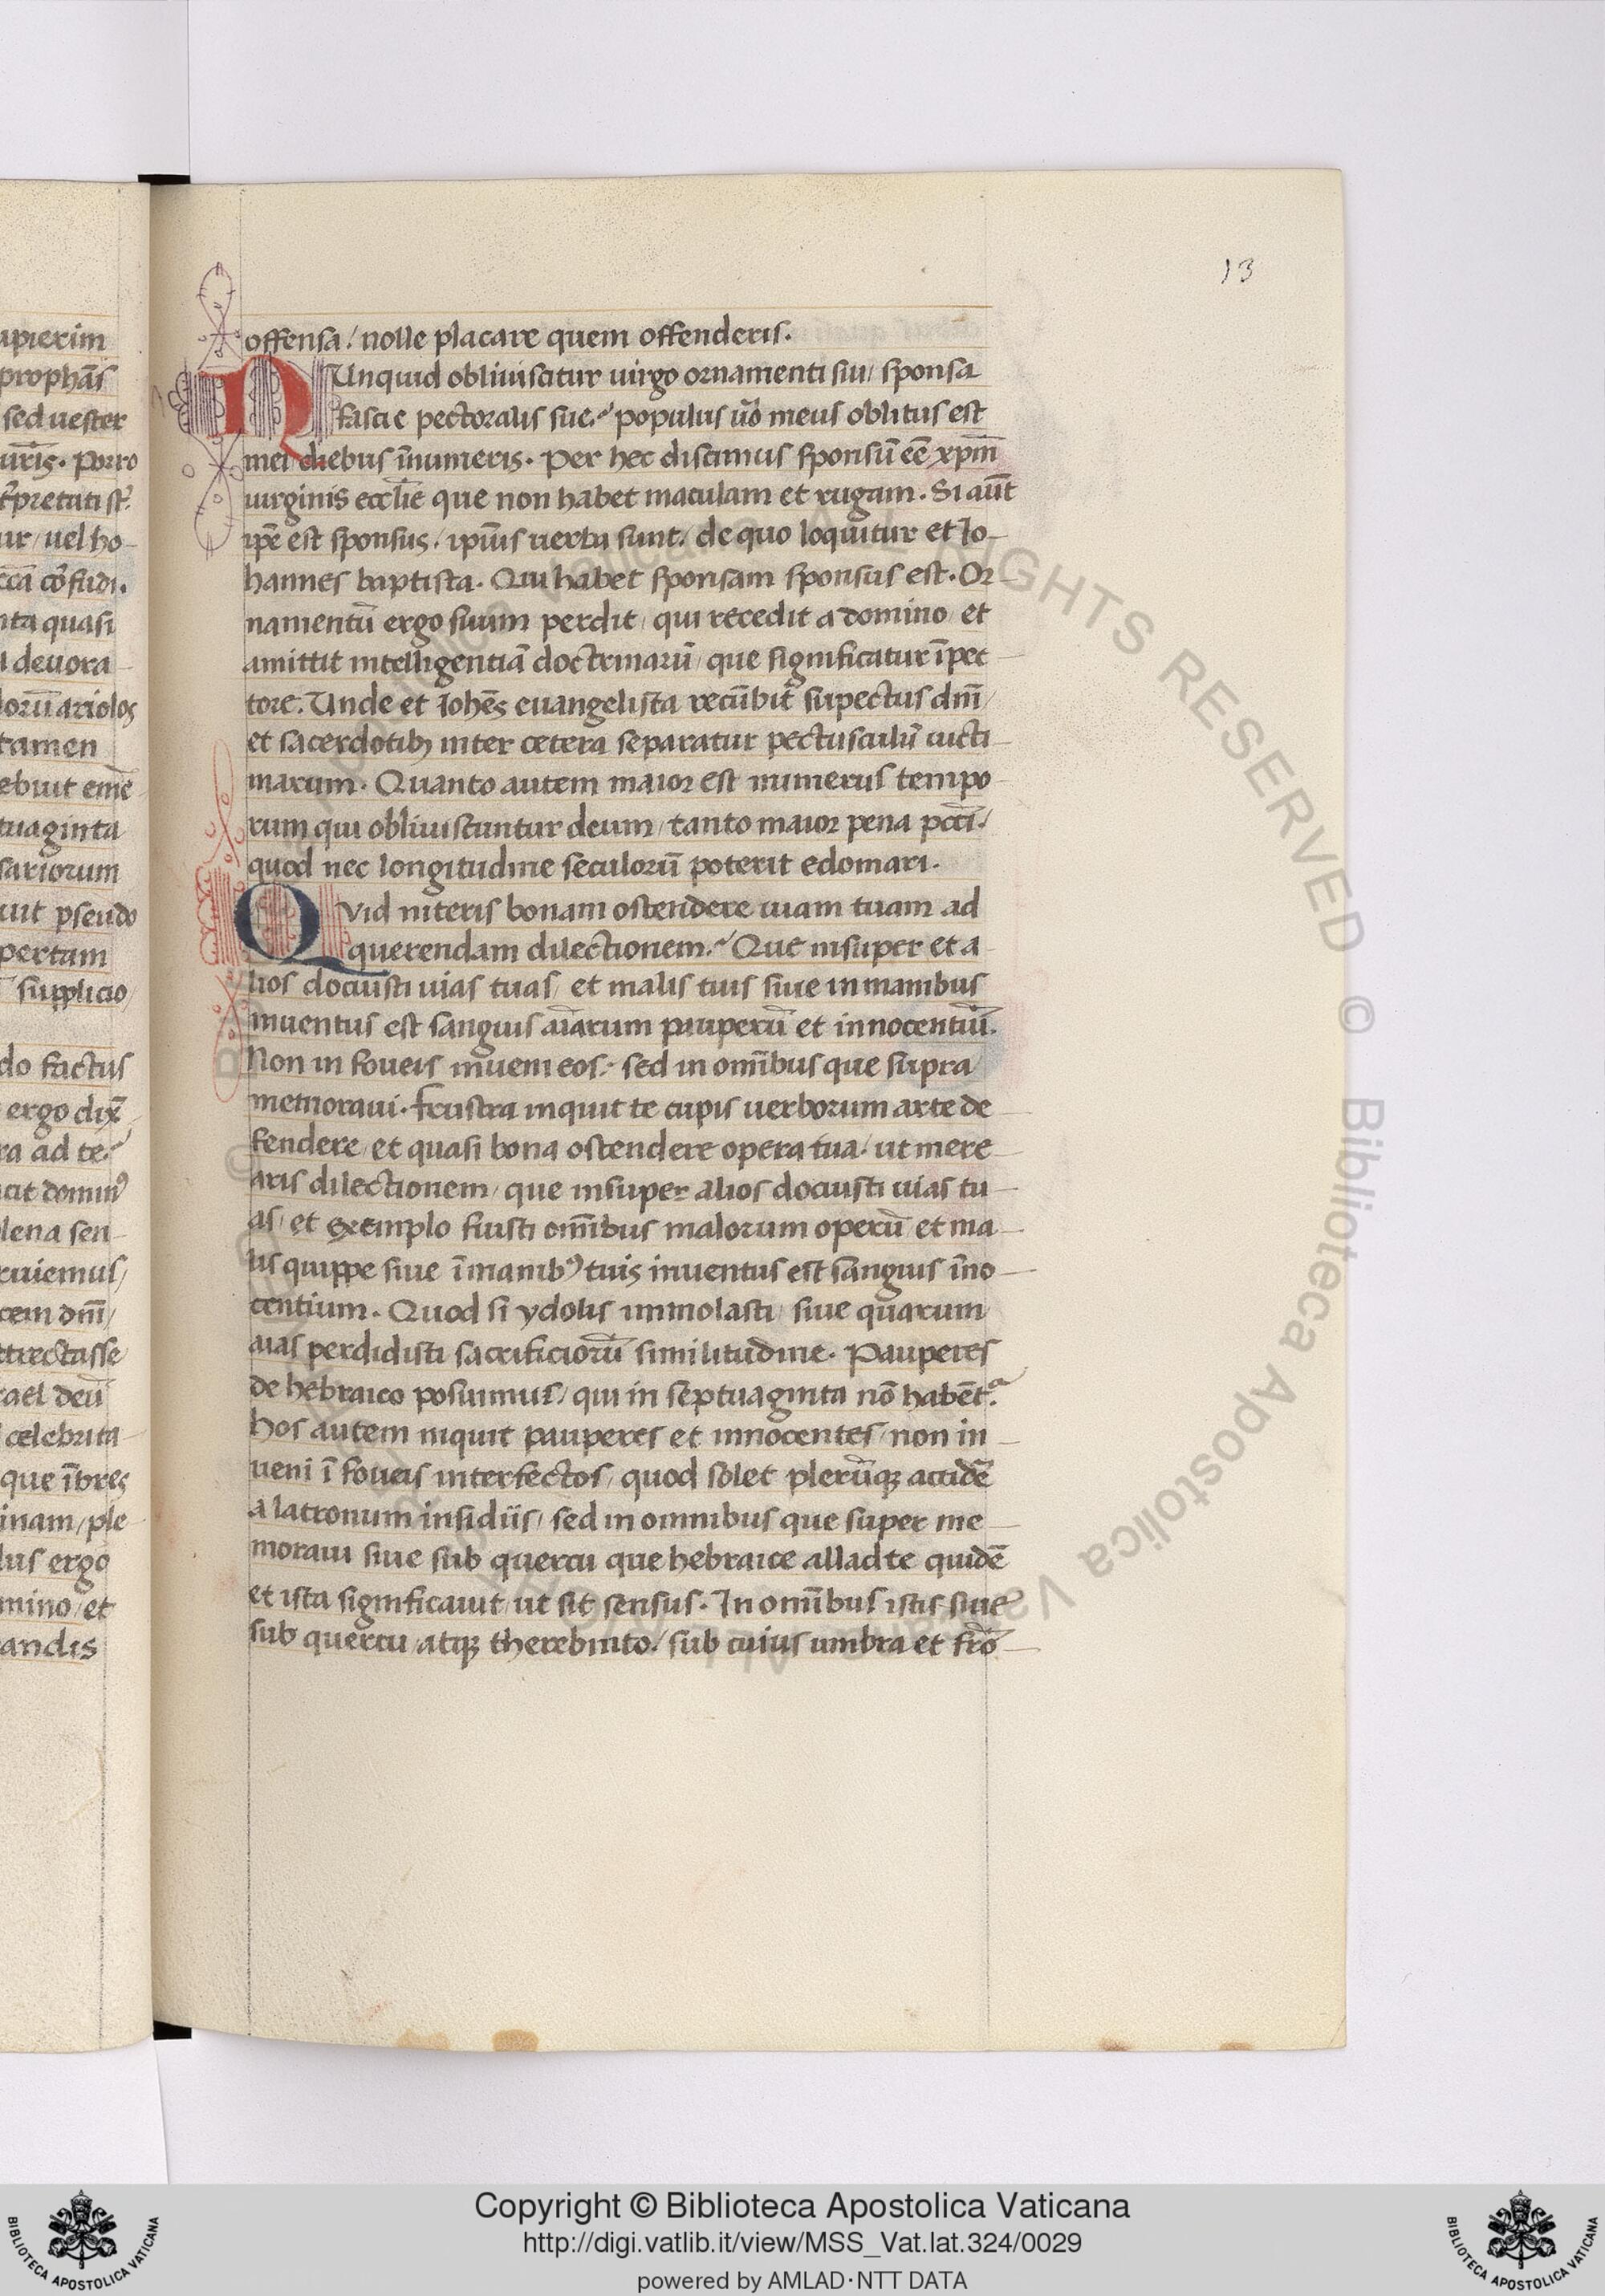 13
apierim
prophãs
sed uester
ur̃is. Porro
t̃pretati st̃.
ur / uel ho-
cc̃a cõfudi.
nta quasi
deuora-
lorũ ariolos
tamen
ebuit eme-
tuaginta
sariorum
uit pseudo
pertam
supplicio /
do factus
ergo dix̃
ra ad te.
cit domin⁹
lena sen-
ruiemus /
cem dnĩ /
ttrectasse
rael deũ
celebrita-
que ĩbres
inam / ple-
lus ergo
mino / et
andis
offensa / nolle placare quem offenderis.
NUnquid obliuiscitur uirgo ornamenti sui / sponsa
fascie pectoralis sue? populus ũo meus oblitus est
mei diebus ĩnumeris. Per hec discimus sponsũ eẽ xp̃m
uirginis eccl̃ie que non habet maculam et rugam. Si aũt
ip̃e est sponsus / ip̃ius uerba sunt / de quo loquitur et Io-
hannes baptista. Qui habet sponsam sponsus est. Or-
namentũ ergo suum perdit / qui recedit a domino / et
amittit intelligentiã doctrinarũ / que significatur ĩ pec-
tore. Unde et Iohẽs euangelista recũbit sup̃ectus dnĩ /
et sacerdotibꝫ inter cetera separatur pectusculũ uicti-
marum. Quanto autem maior est numerus tempo-
rum qui obliuiscuntur deum / tanto maior pena pcc̃i /
quod nec longitudine seculorũ poterit edomari.
QVid niteris bonam ostendere uiam tuam ad
querendam dilectionem? Que insuper et a-
lios docuisti uias tuas / et malis tuis siue in manibus
inuentus est sanguis ãiarum pauperũ et innocentiũ.
Non in foueis inueni eos. sed in omĩbus que supra
memoraui. frustra inquit te cupis uerborum arte de-
fendere / et quasi bona ostendere opera tua / ut mere-
aris dilectionem / que insuper alios docuisti uias tu-
as / et exemplo fuisti omĩbus malorum operũ / et ma-
lis quippe siue ĩ manib⁹ tuis inuentus est sanguis ĩno-
centium. Quod si ydolis immolasti / siue quarum
aĩas perdidisti sacrificiorũ similitudine. Pauperes
de hebraico posuimus / qui in septuaginta nõ habẽt̃.
hos autem inquit pauperes et innocentes / non in-
ueni ĩ foueis interfectos / quod solet plerũqꝫ accidẽ
a latronum insidiis / sed in omnibus que super me-
moraui siue sub quercu que hebraice alla dicitur... quidẽ
et ista significauit / ut sit sensus. In omĩbus istis siue
sub quercu / atqꝫ therebinto / sub cuius umbra et frõ-
© Biblioteca Apostolica Vaticana ALL RIGHTS RESERVED
Copyright © Biblioteca Apostolica Vaticana
http://digi.vatlib.it/view/MSS_Vat.lat.324/0029
powered by AMLAD·NTT DATA
BIBLIOTECA APOSTOLICA VATICANA
BIBLIOTECA APOSTOLICA VATICANA